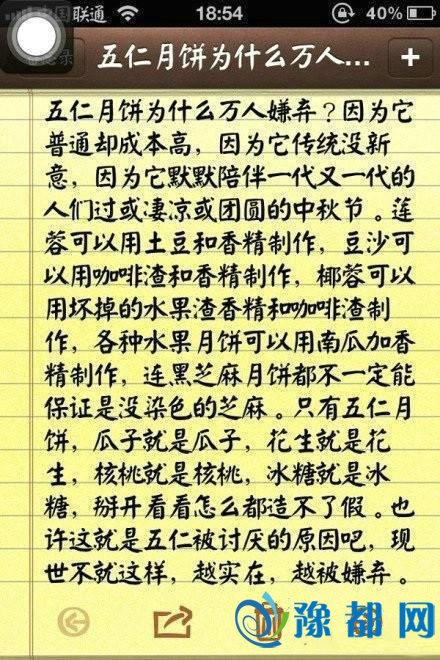 中国联通 18:54 40%
备忘录 五仁月饼为什么万人... +
五仁月饼为什么万人嫌弃？因为它
普通却成本高，因为它传统没新
意，因为它默默陪伴一代又一代的
人们过或凄凉或团圆的中秋节。莲
蓉可以用土豆和香精制作，豆沙可
以用咖啡渣和香精制作，椰蓉可以
用坏掉的水果渣香精和咖啡渣制
作，各种水果月饼可以用南瓜加香
精制作，连黑芝麻月饼都不一定能
保证是没染色的芝麻。只有五仁月
饼，瓜子就是瓜子，花生就是花
生，核桃就是核桃，冰糖就是冰
糖，掰开看看怎么都造不了假。也
许这就是五仁被讨厌的原因吧，现
世不就这样，越实在，越被嫌弃。
豫都网